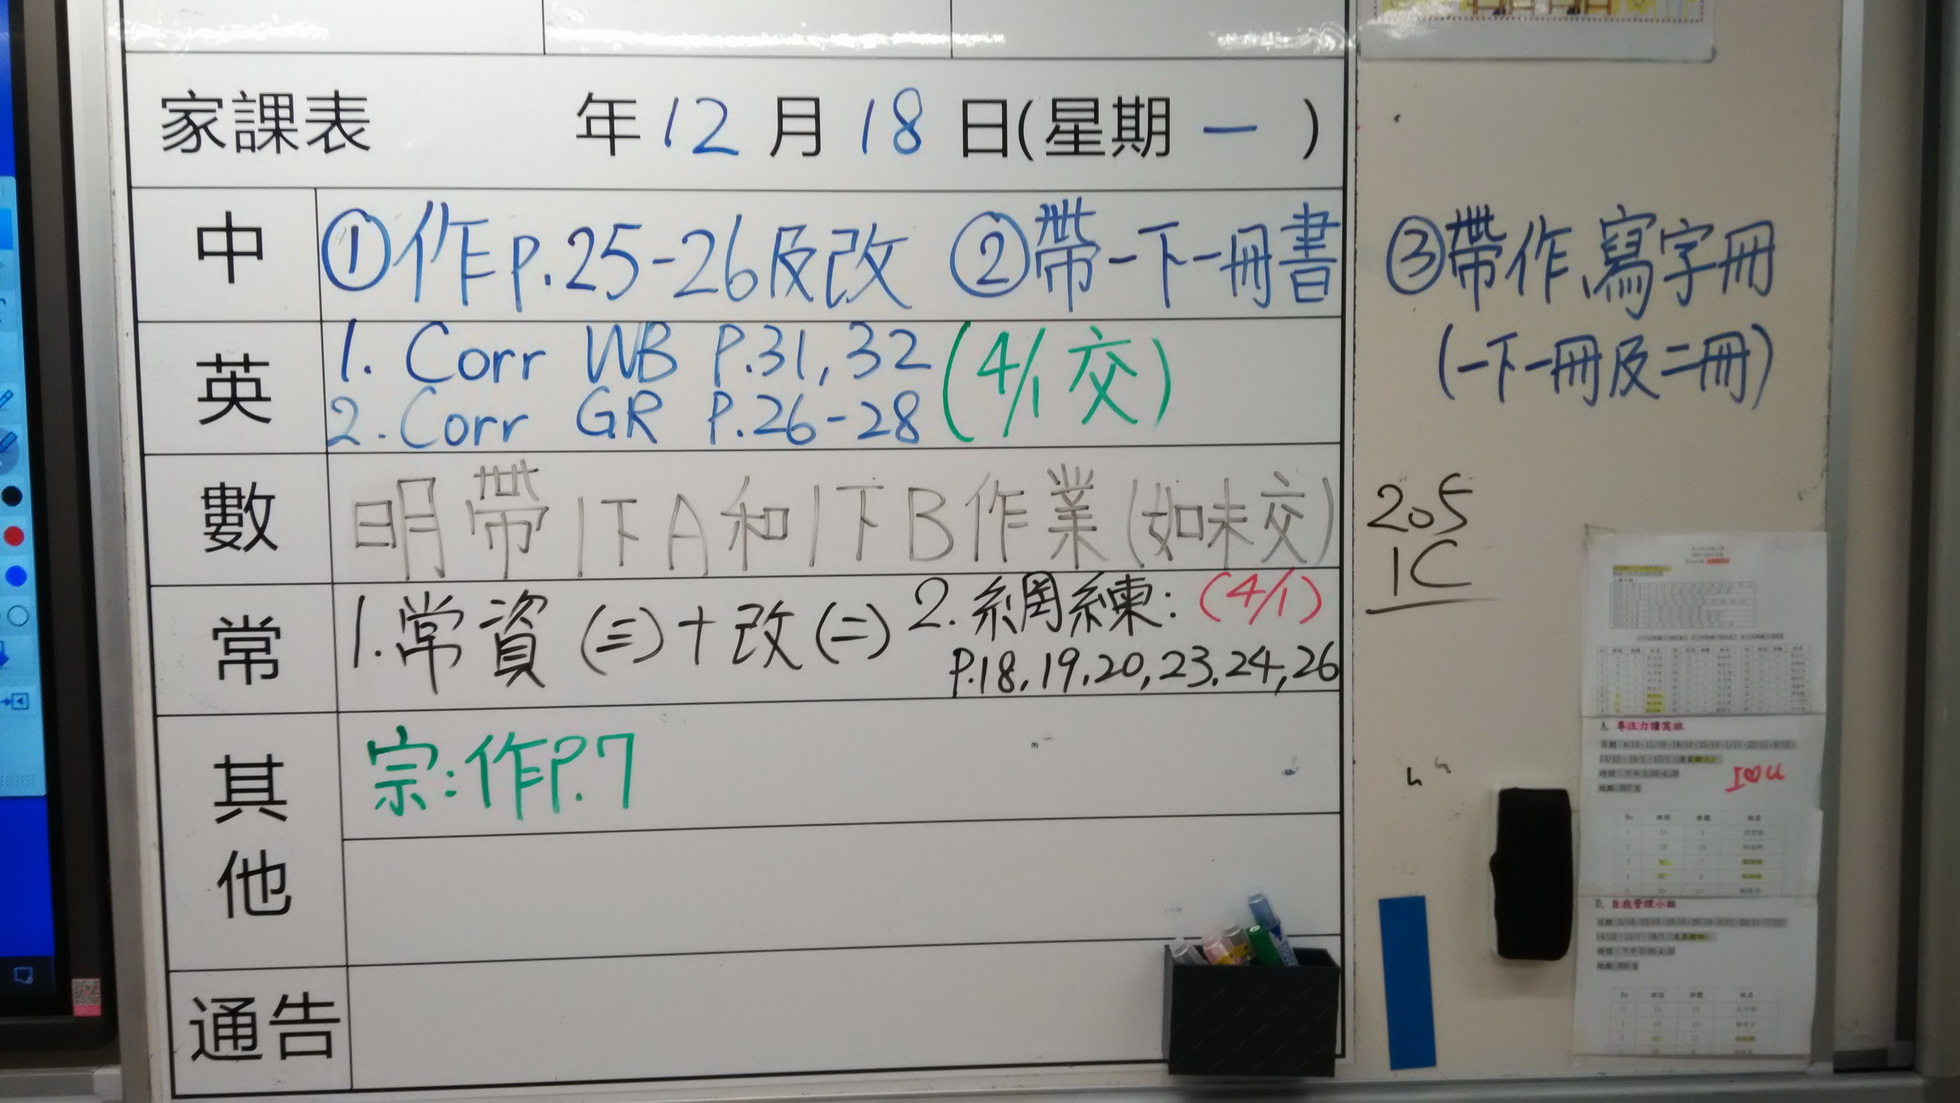 家課表 年 12 月 18 日(星期 一 )
中 ①作p.25-26及改 ②帶一下一冊書 ③帶作、寫字冊
(一下一冊及二冊)
英 1. Corr WB P.31, 32 (4/1 交)
2. Corr GR P.26-28
數 明帶1下A和1下B作業(如未交)
205
1C
常 1.常資(三)+改(二) 2.網練: (4/1)
P.18,19,20,23,24,26
其他 宗:作P.7
通告
A. 專注力讀寫班
I♡U
D. 自我管理小組